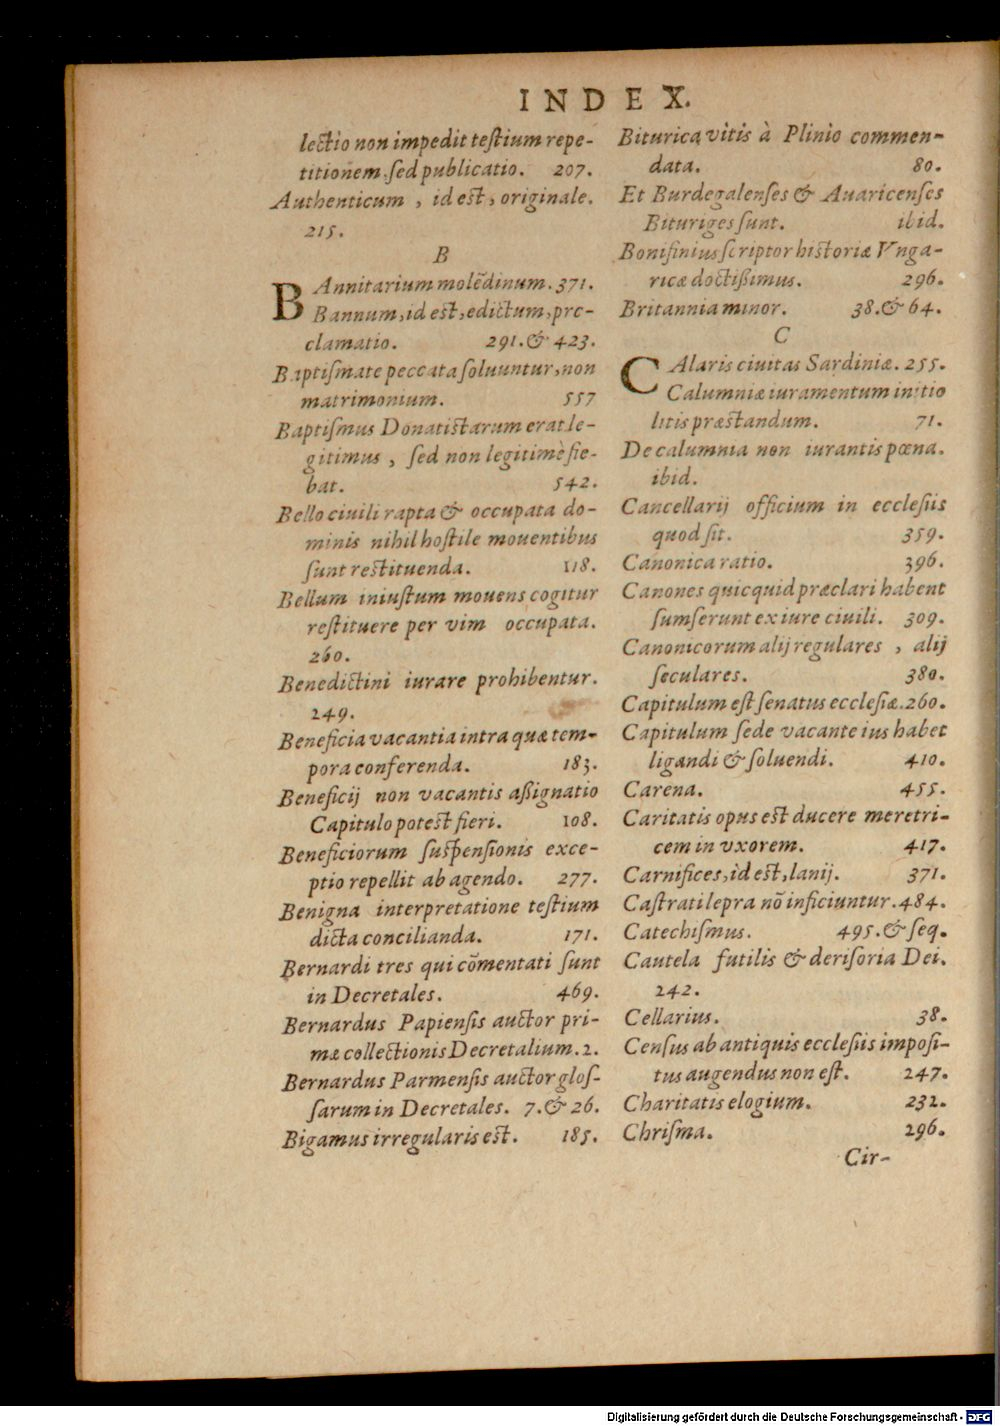 INDEX.
lectio non impedit teſtium repe-
titionem, ſed publicatio. 207.
Authenticum, id est, originale.
215.
B
BAnnitarium molēdinum. 371.
Bannum, id est, edictum, pro-
clamatio. 291. & 423.
Baptiſmate peccata ſoluuntur, non
matrimonium. 557
Baptiſmus Donatistarum erat le-
gitimus, ſed non legitimè fie-
bat. 542.
Bello ciuili rapta & occupata do-
minis nihil hoſtile mouentibus
ſunt restituenda. 118.
Bellum iniuſtum mouens cogitur
reſtituere per vim occupata.
260.
Benedictini iurare prohibentur.
249.
Beneficia vacantia intra quæ tem-
pora conferenda. 183.
Beneficij non vacantis aßignatio
Capitulo potest fieri. 108.
Beneficiorum ſuſpenſionis exce-
ptio repellit ab agendo. 277.
Benigna interpretatione teſtium
dicta concilianda. 171.
Bernardi tres qui cōmentati ſunt
in Decretales. 469.
Bernardus Papienſis auctor pri-
mæ collectionis Decretalium. 2.
Bernardus Parmenſis auctor gloſ-
ſarum in Decretales. 7. & 26.
Bigamus irregularis est. 185.
Biturica vitis à Plinio commen-
data. 80.
Et Burdegalenſes & Auaricenſes
Bituriges ſunt. ibid.
Bonifinius ſcriptor historiæ Vnga-
ricæ doctißimus. 296.
Britannia minor. 38. & 64.
C
CAlaris ciuitas Sardiniæ. 255.
Calumniæ iuramentum initio
litis præstandum. 71.
De calumnia non iurantis pœna.
ibid.
Cancellarij officium in eccleſiis
quod ſit. 359.
Canonica ratio. 396.
Canones quicquid præclari habent
ſumſerunt ex iure ciuili. 309.
Canonicorum alij regulares, alij
ſeculares. 380.
Capitulum eſt ſenatus eccleſiæ. 260.
Capitulum ſede vacante ius habet
ligandi & ſoluendi. 410.
Carena. 455.
Caritatis opus est ducere meretri-
cem in vxorem. 417.
Carnifices, id est, lanij. 371.
Caſtrati lepra nō inficiuntur. 484.
Catechiſmus. 495. & ſeq.
Cautela futilis & deriſoria Dei.
242.
Cellarius. 38.
Cenſus ab antiquis eccleſiis impoſi-
tus augendus non eſt. 247.
Charitatis elogium. 232.
Chriſma. 296.
Cir-
Digitalisierung gefördert durch die Deutsche Forschungsgemeinschaft - DFG